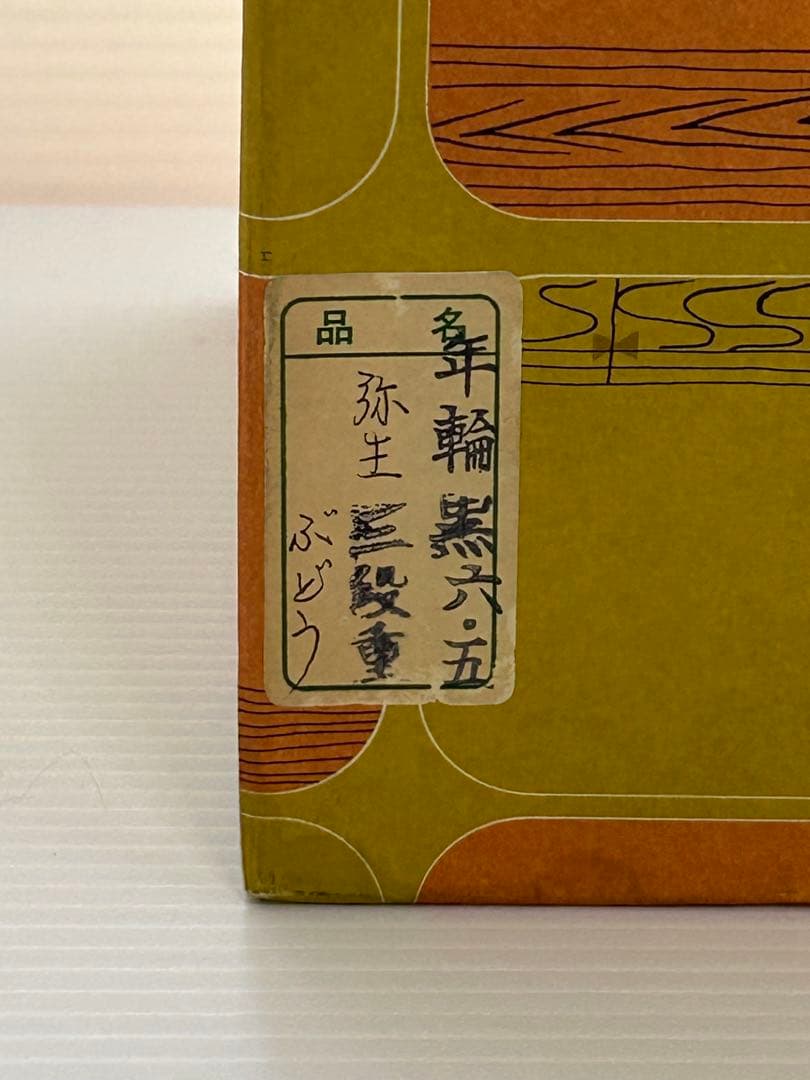 品名
年輪黒六・五
弥生三段重
ぶどう